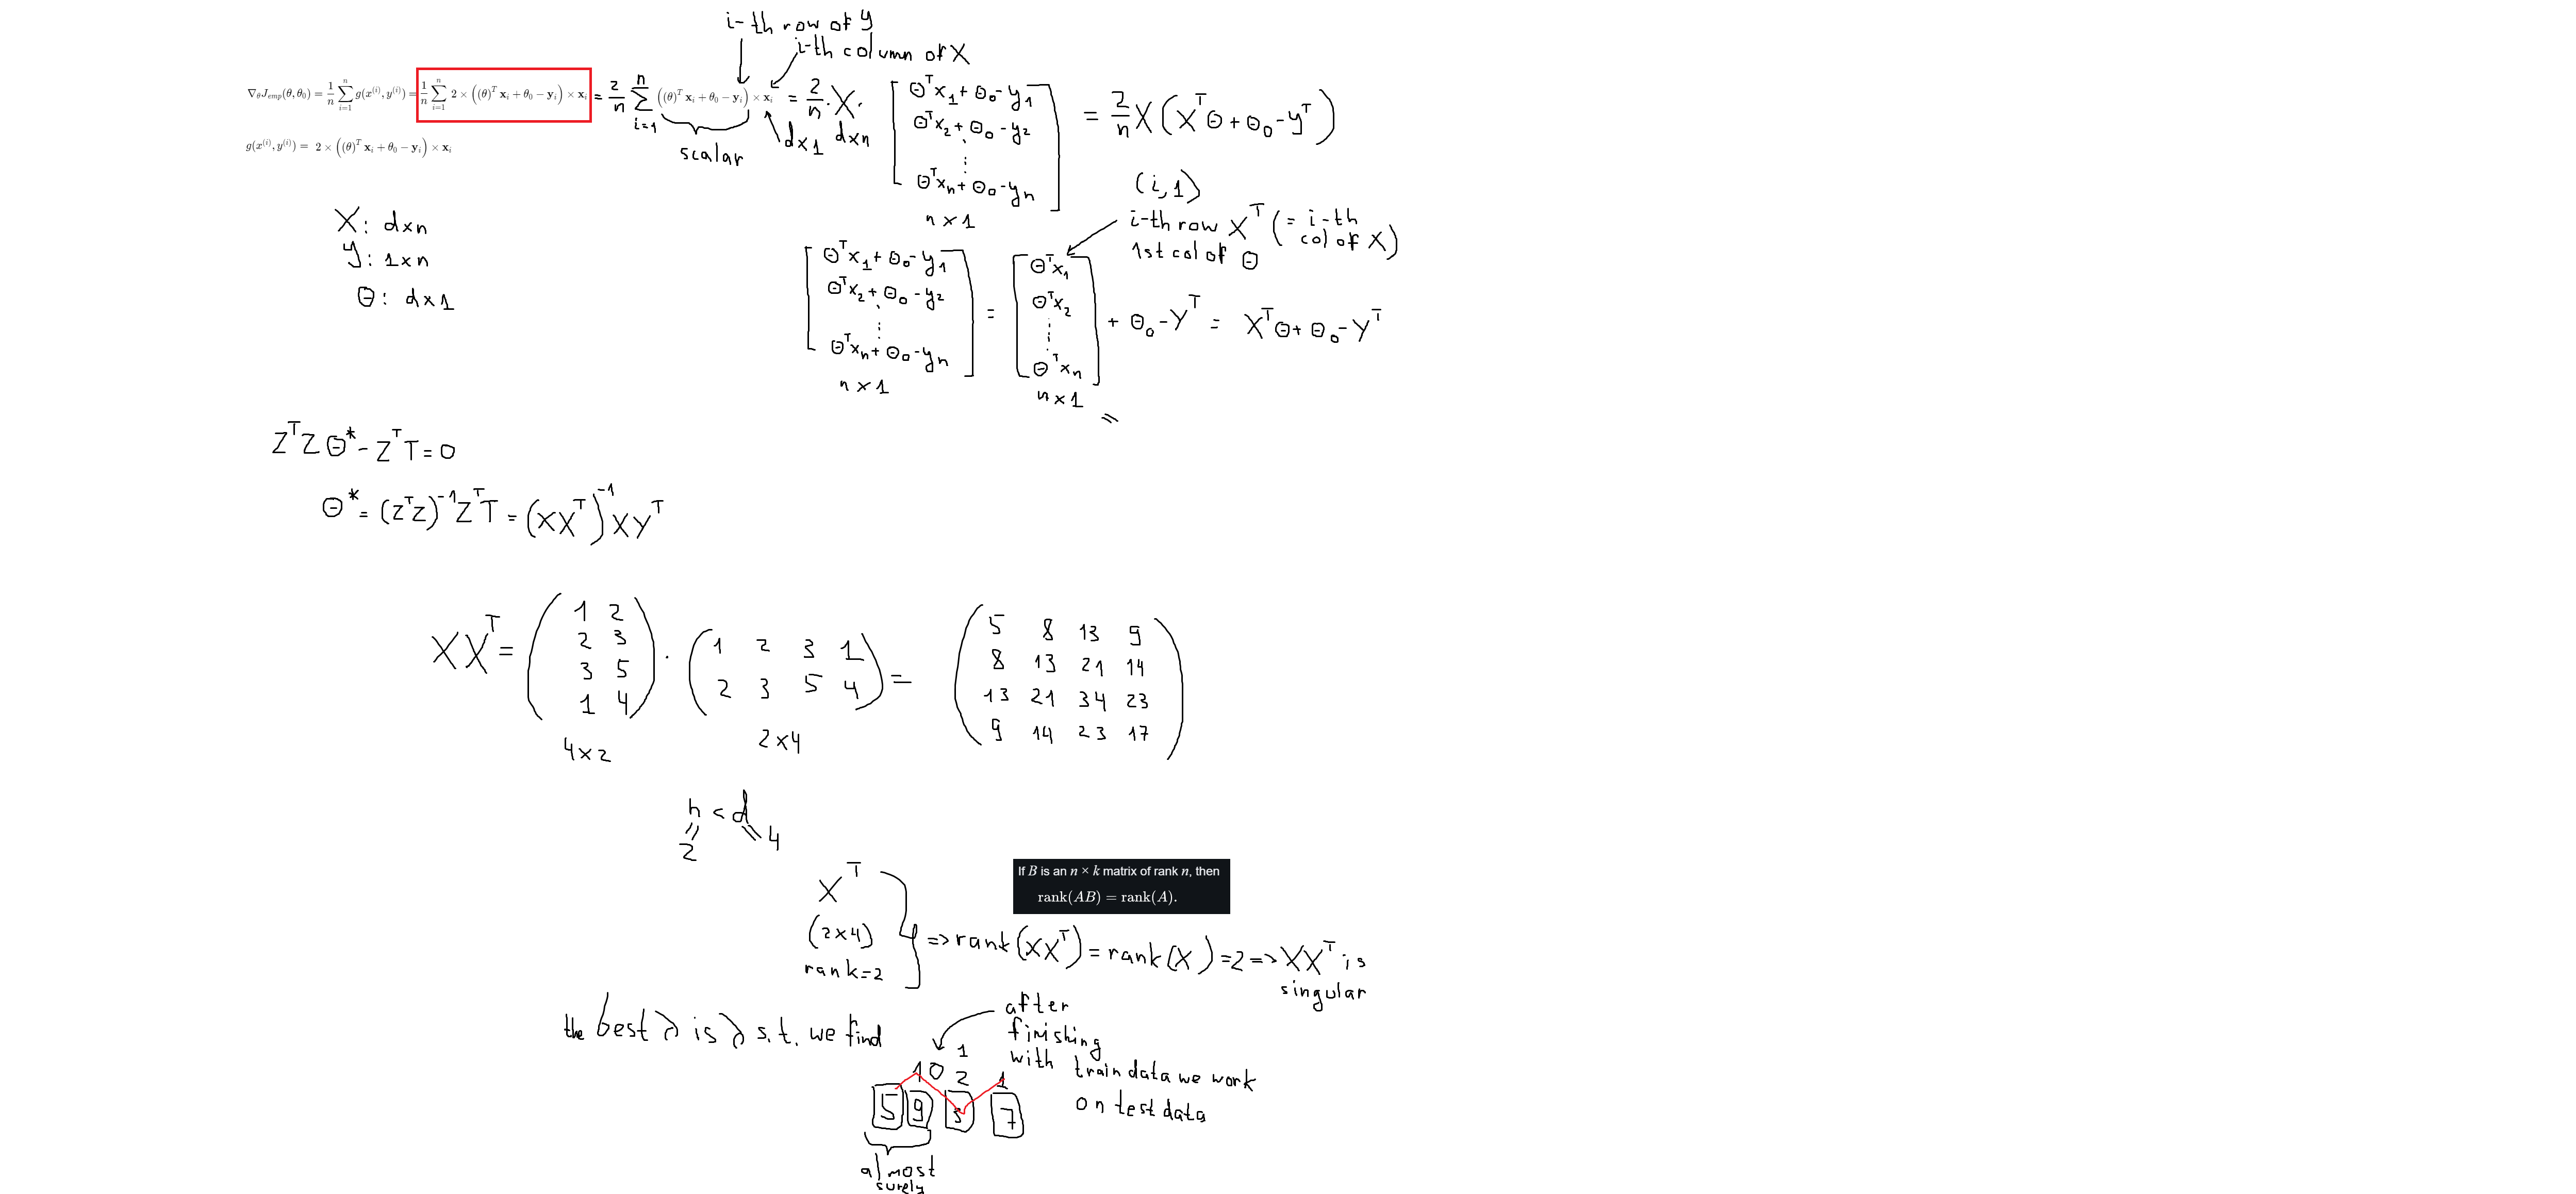 i-th row of y
i-th column of X
∇_θ J_emp(θ, θ_0) = 1/n ∑_{i=1}^{n} g(x^(i), y^(i)) = 1/n ∑_{i=1}^{n} 2 × ((θ)^T x_i + θ_0 − y_i) × x_i = 2/n ∑_{i=1}^{n} ((θ)^T x_i + θ_0 − y_i) × x_i = 2/n · X · [θ^T x_1 + θ_0 - y_1
θ^T x_2 + θ_0 - y_2
⋮
θ^T x_n + θ_0 - y_n] = 2/n X (X^T θ + θ_0 - y^T)
scalar
d×1
d×n
n×1
g(x^(i), y^(i)) = 2 × ((θ)^T x_i + θ_0 − y_i) × x_i
X: d×n
y: 1×n
θ: d×1
(i,1)
i-th row X^T (= i-th
col of X)
1st col of θ
[θ^T x_1 + θ_0 - y_1
θ^T x_2 + θ_0 - y_2
⋮
θ^T x_n + θ_0 - y_n] = [θ^T x_1
θ^T x_2
⋮
θ^T x_n] + θ_0 - Y^T = X^T θ + θ_0 - Y^T
n×1
n×1
=
Z^T Z θ* - Z^T T = 0
θ* = (Z^T Z)^-1 Z^T T = (XX^T)^-1 XY^T
XX^T = (1 2
2 3
3 5
1 4) · (1 2 3 1
2 3 5 4) = (5 8 13 9
8 13 21 14
13 21 34 23
9 14 23 17)
4×2
2×4
n < d
2
4
X^T
(2×4)
rank=2
If B is an n × k matrix of rank n, then
rank(AB) = rank(A).
=> rank(XX^T) = rank(X) = 2 => XX^T is
singular
the best λ is λ s.t. we find
after
finishing
with train data we work
on test data
1
10 2 1
5 9 3 7
almost
surely